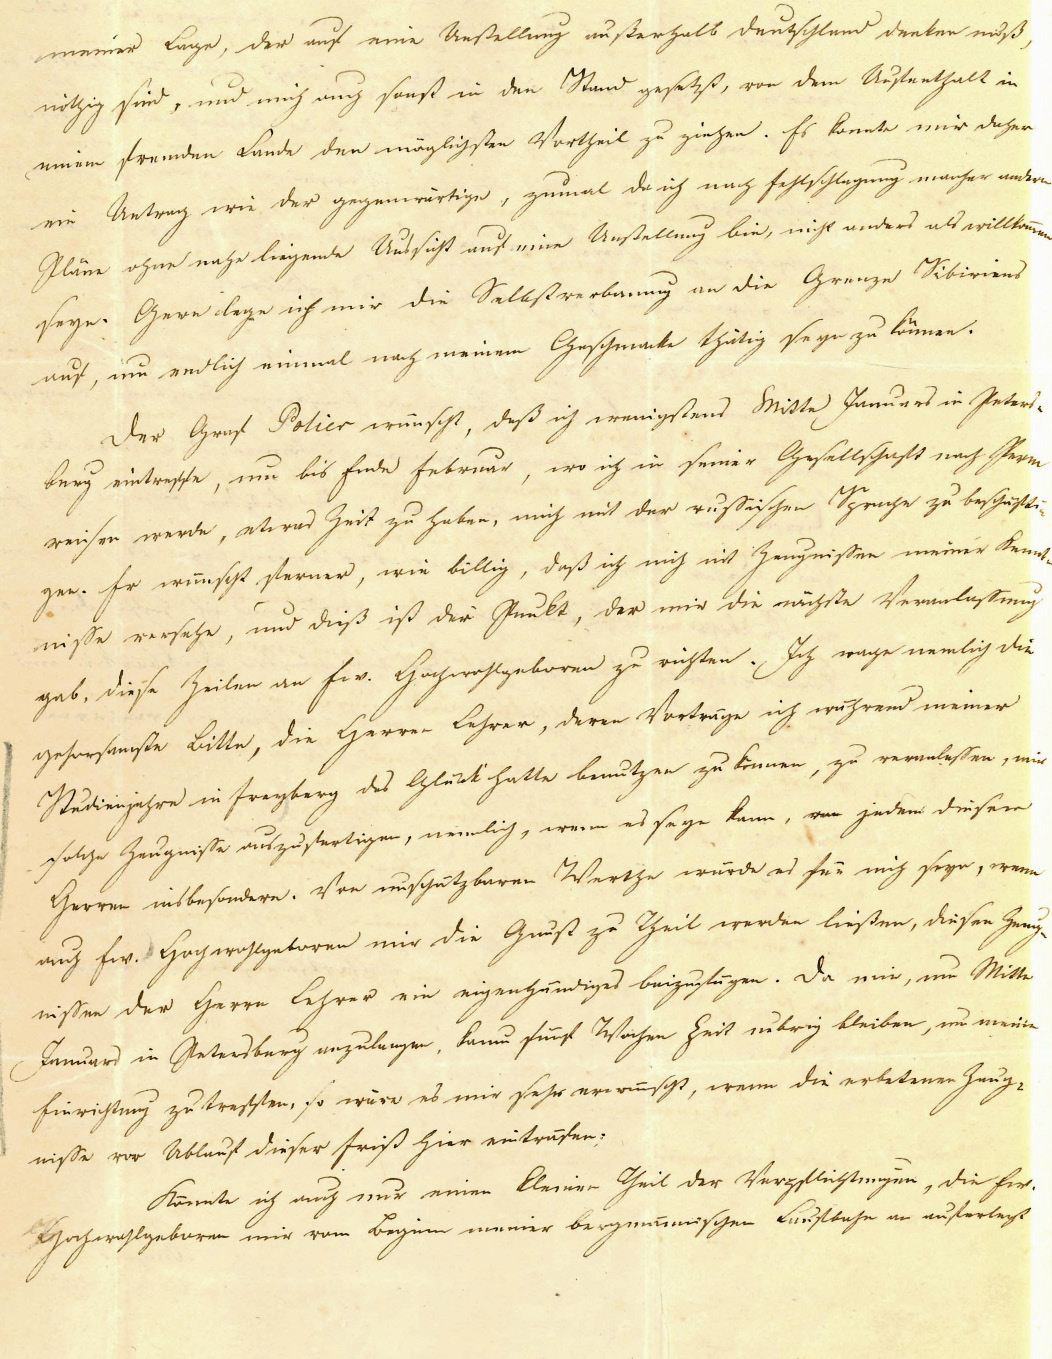 meiner Lage, der auf eine Anstellung außerhalb Deutschland denken muß,
nöthig sind, und mich auch sonst in den Stand gesetzt, von dem Aufenthalt in
einem fremden Lande den möglichsten Vortheil zu ziehen. Es konnte mir daher
ein Antrag wie der gegenwärtige, zumal da ich nach Fehlschlagung mancher andern
Pläne ohne nahe liegende Aussicht auf eine Anstellung bin, nicht anders als willkommen
seyn. Gern lege ich mir die Selbstverbannung an die Grenze Sibiriens
auf, um endlich einmal nach meinem Geschmacke thätig seyn zu können.
Der Graf Polier wünscht, daß ich wenigstens Mitte Januars in Peters-
burg eintreffe, um bis Ende Februar, wo ich in seiner Gesellschaft nach Perm
reisen werde, etwas Zeit zu haben, mich mit der russischen Sprache zu beschäfti-
gen. Er wünscht ferner, wie billig, daß ich mich mit Zeugnissen meiner Kennt-
nisse versehe, und dieß ist der Punkt, der mir die nächste Veranlassung
gab, diese Zeilen an Ew. Hochwohlgeboren zu richten. Ich wage nemlich die
gehorsamste Bitte, die Herren Lehrer, deren Vorträge ich während meiner
Studienjahre in Freyberg das Glück hatte benutzen zu können, zu veranlassen, mir
solche Zeugnisse auszufertigen, nemlich, wenn es seyn kann, von jedem dieser
Herren insbesondere. Von unschätzbarem Werthe würde es für mich seyn, wenn
auch Ew. Hochwohlgeboren mir die Gunst zu Theil werden ließen, diesen Zeug-
nissen der Herrn Lehrer ein eigenhändiges beizufügen. Da mir, um Mitte
Januars in Petersburg anzulangen, kaum fünf Wochen Zeit übrig bleiben, um meine
Einrichtung zu treffen, so wäre es mir sehr erwünscht, wenn die erbetenen Zeug-
nisse vor Ablauf dieser Frist hier einträfen.
Könnte ich auch nur einen kleinen Theil der Verpflichtungen, die Ew.
Hochwohlgeboren mir vom Beginn meiner bergmännischen Laufbahn an auferlegt